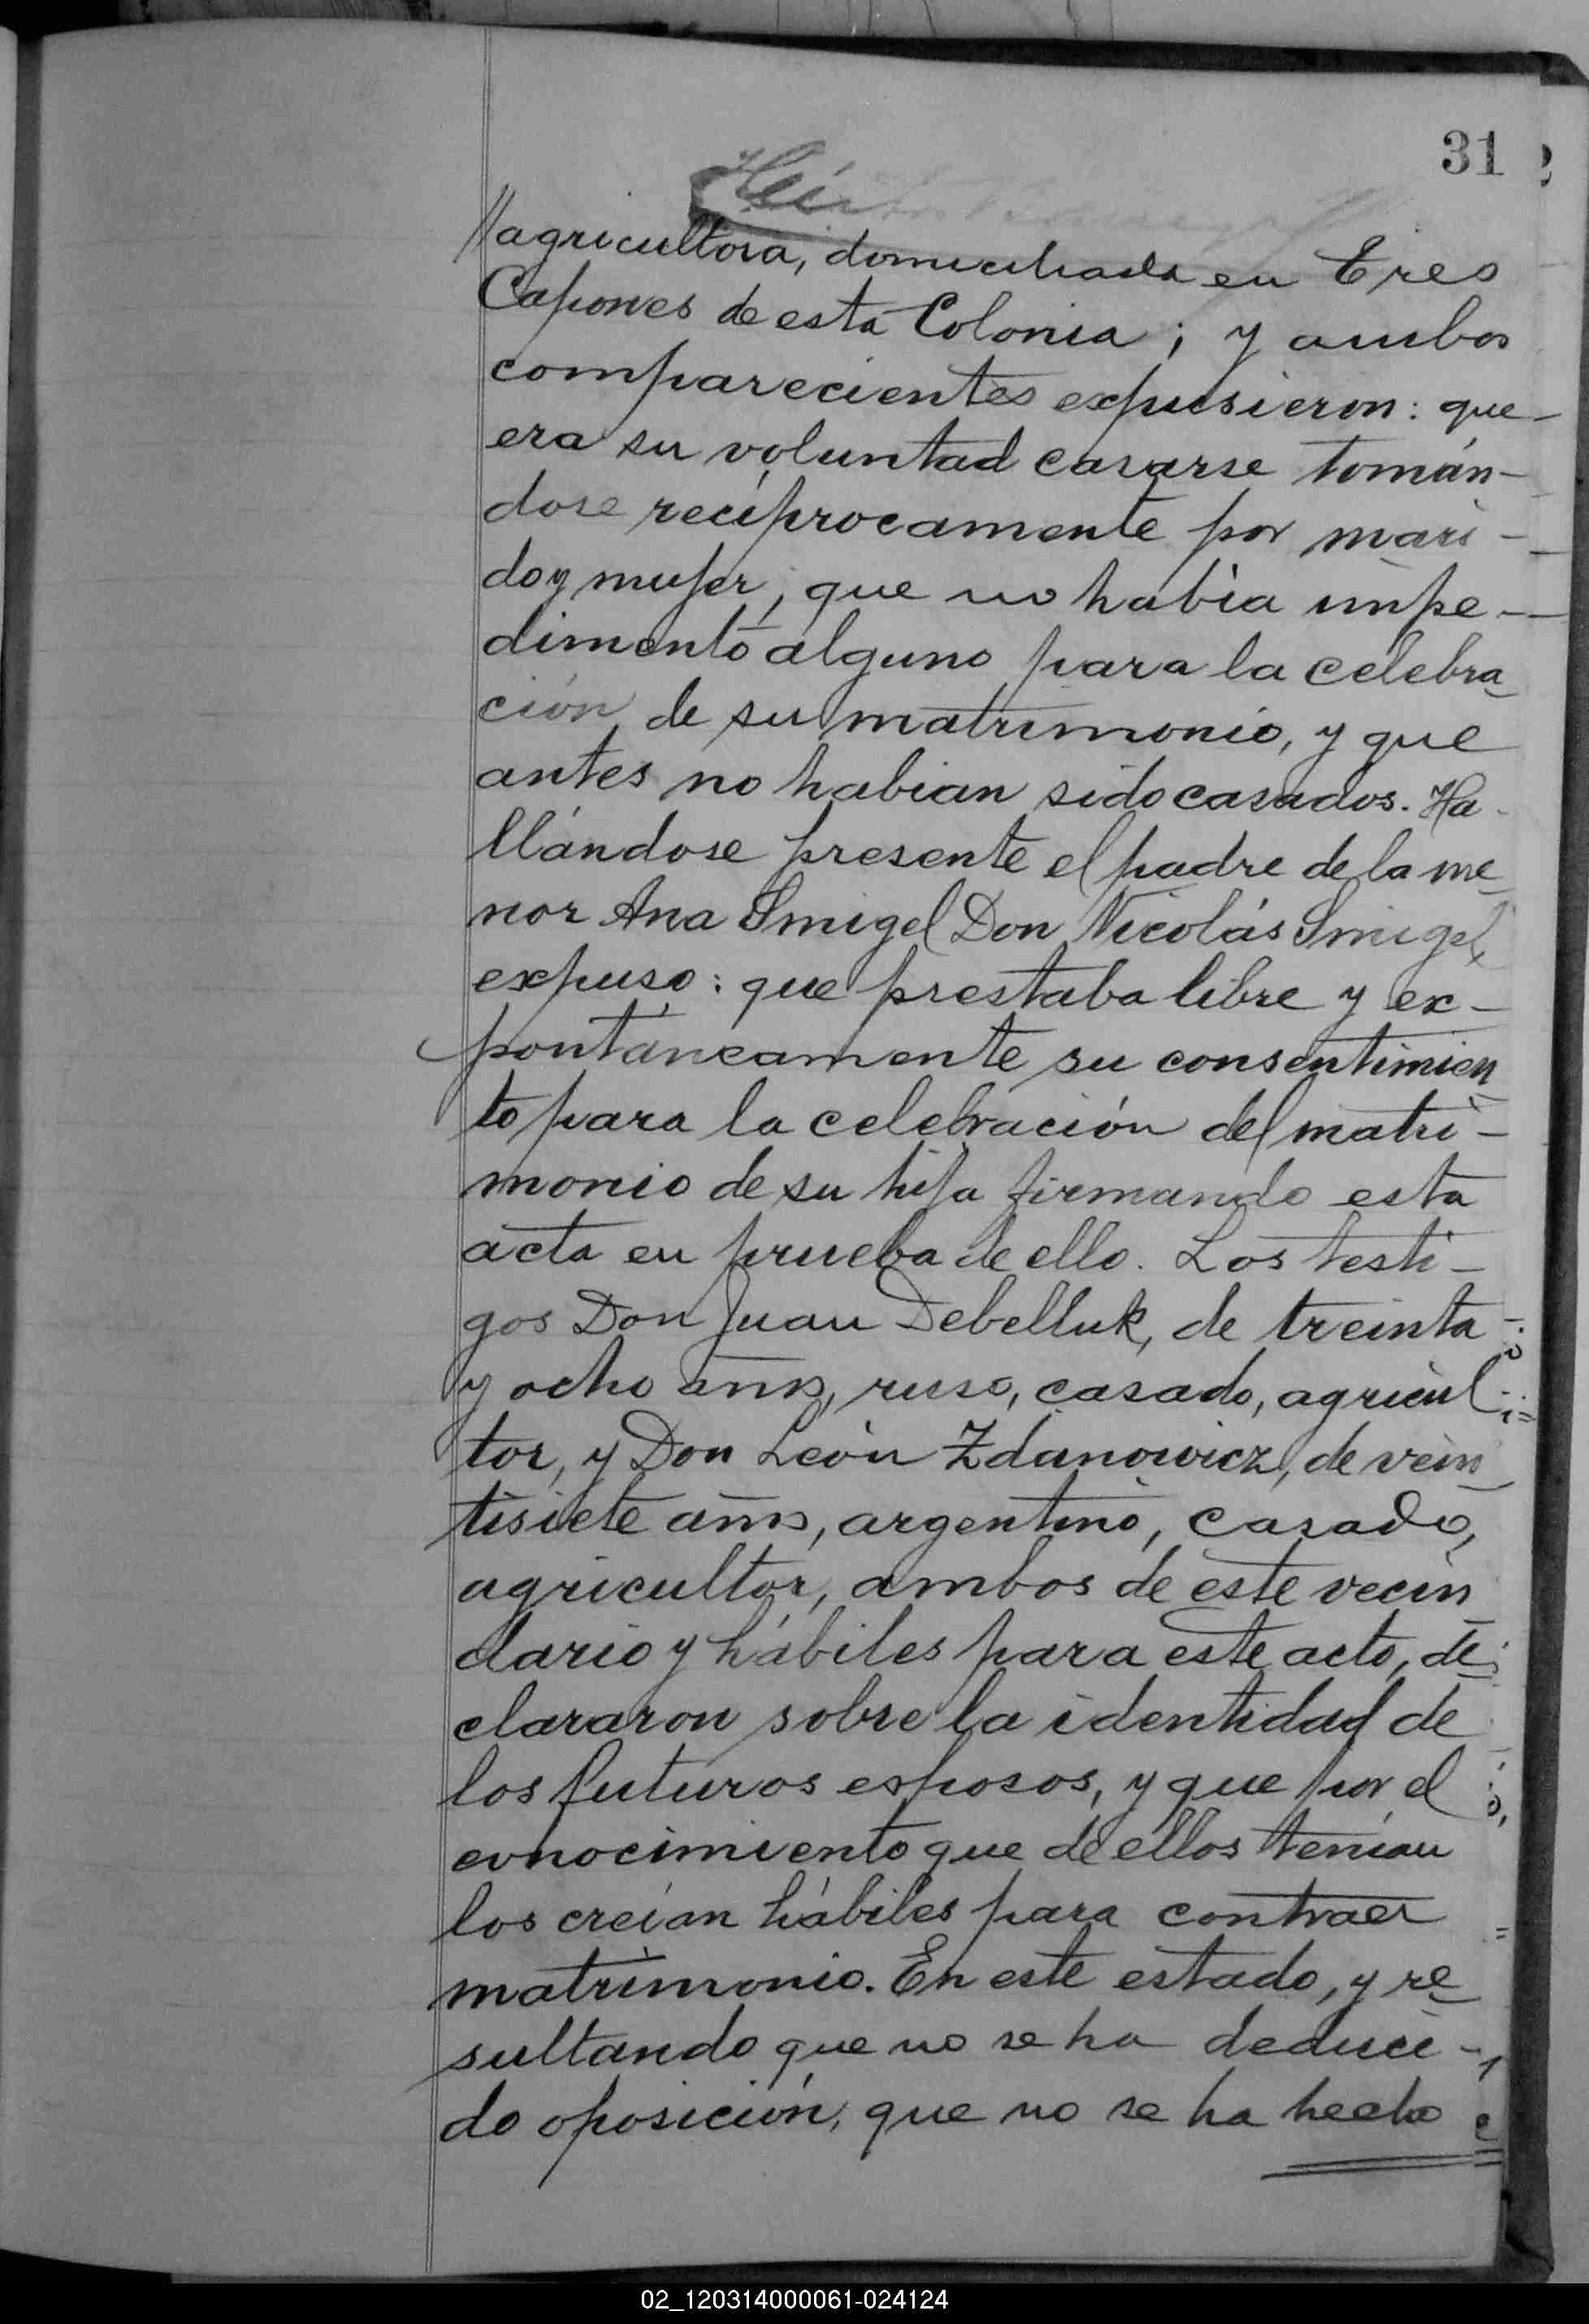 31
//agricultora, domiciliada en Tres
Capones de esta Colonia; y ambos
comparecientes expusieron: que
era su voluntad casarse tomán-
dose recíprocamente por mari-
do y mujer, que no había impe-
dimento alguno para la celebra
ción de su matrimonio, y que
antes no habian sido casados. Ha-
llándose presente el padre de la me
nor Ana Smigel Don Nicolás Smigel,
expuso: que prestaba libre y ex-
pontáneamente su consentimien
to para la celebración del matri-
monio de su hija firmando esta
acta en prueba de ello. Los testi-
gos Don Juan Debelluk, de treinta
y ocho años, ruso, casado, agricul
tor, y Don León Zdanowicz, de vein
tisiete años, argentino, casado,
agricultor, ambos de este vecin
dario y hábiles para este acto, de
clararon sobre la identidad de
los futuros esposos, y que por el
conocimiento que de ellos tenían
los creían hábiles para contraer
matrimonio. En este estado, y re
sultando que no se ha deduci-
do oposición, que no se ha hecho
02_120314000061-024124